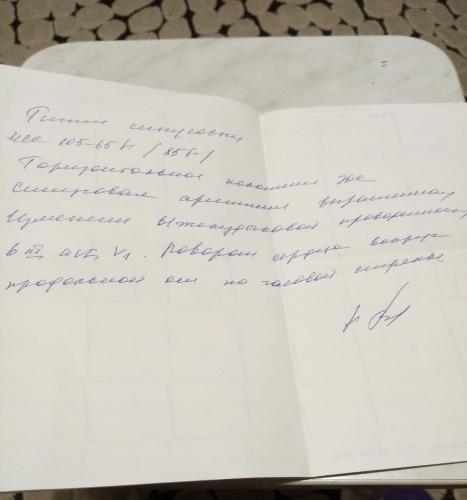 Ритм синусовый
ЧСС 105-65 / 85 /
Горизонтальное положение ЭОС
Синусовая аритмия выраженная
Изменения в/желудочковой проводимости
в III, avF, V1. Поворот сердца вокруг
продольной оси по часовой стрелке